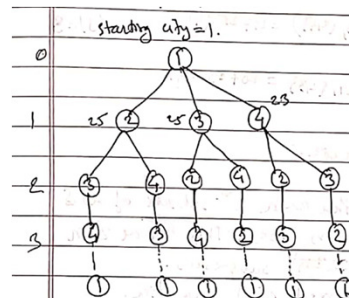 starting city = 1.
0 1
1 25 2 25 3 4 23
2 3 4 2 4 2 3
3 4 3 4 2 3 2
1 1 1 1 1 1